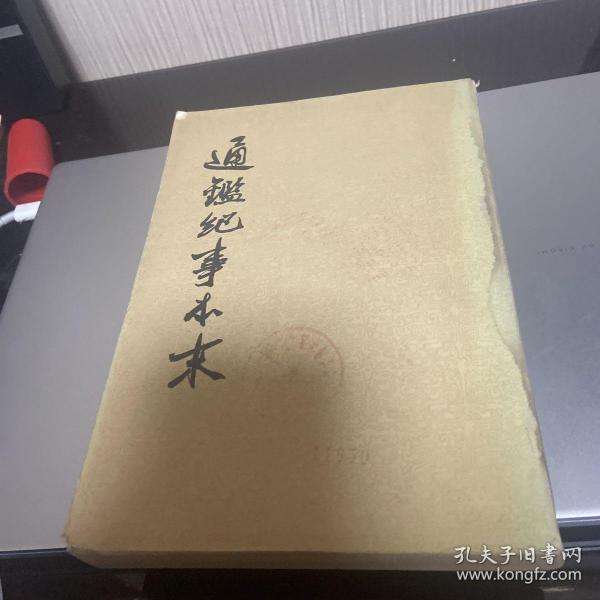 通鑑纪事本末
11950
孔夫子旧书网
www.kongfz.com